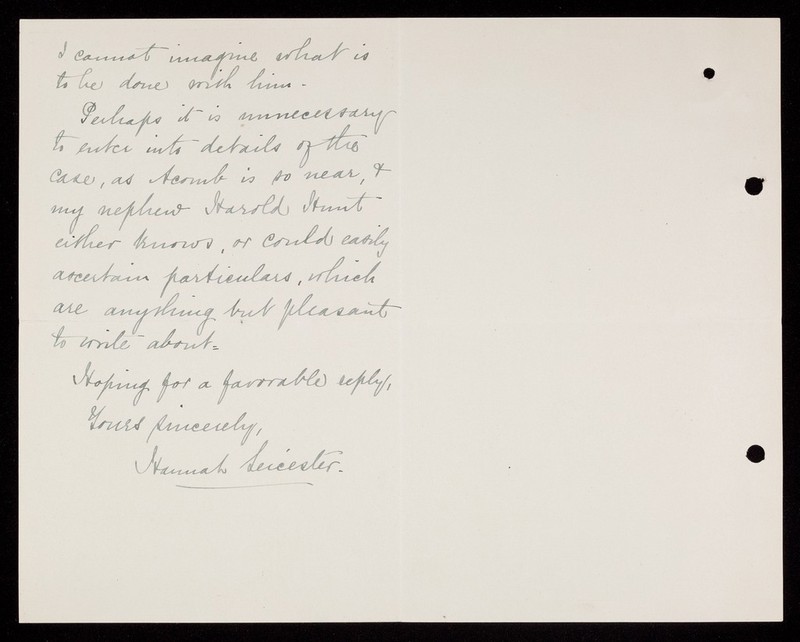 I cannot imagine what is
to be done with him -
Perhaps it is unnecessary
to enter into details of the
case, as Acomb is so near, &
my nephew Harold Hunt
either knows, or could easily
ascertain particulars, which
are anything but pleasant
to write about =
Hoping for a favorable reply,
Yours sincerely,
Hannah Leicester.